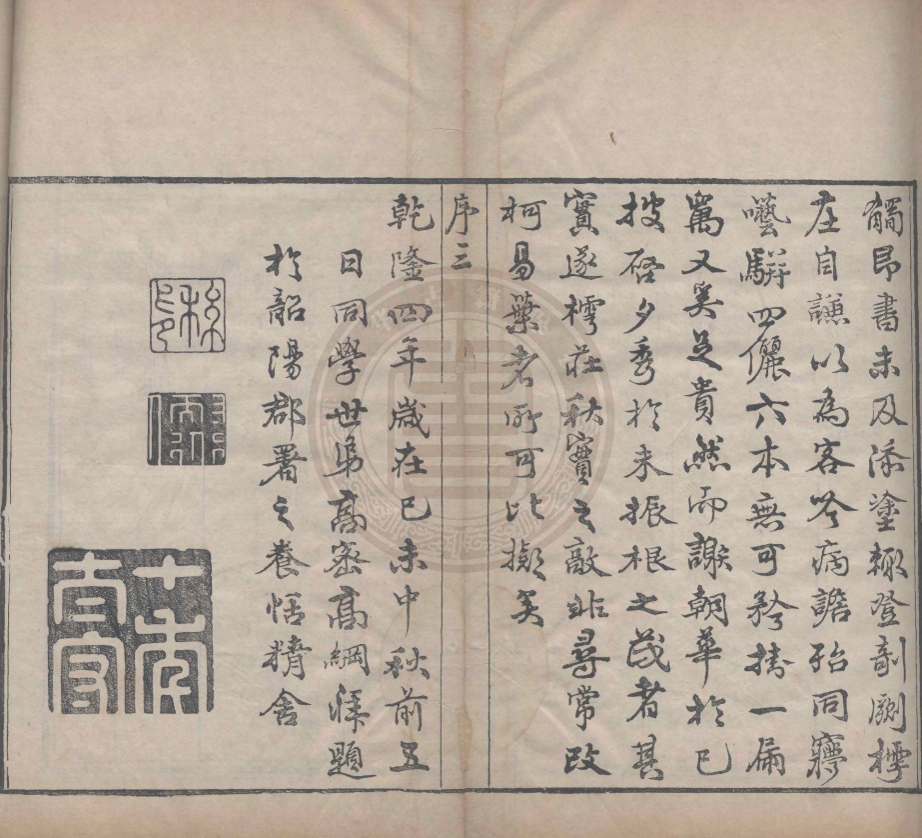 觸即書未及添塗輒登剞劂樗
庄自謙以為客岑病譫殆同寱
囈駢四儷六本無可矜掛一漏
萬又奚足貴然而謝朝華於已
披啓夕秀於未振根之茂者其
實遂樗莊秋實之敵非尋常改
柯易葉者所可比擬矣
序三
乾隆四年歲在己未中秋前五
日同學世弟高密高綱拜題
於韶陽郡署之養恬精舍